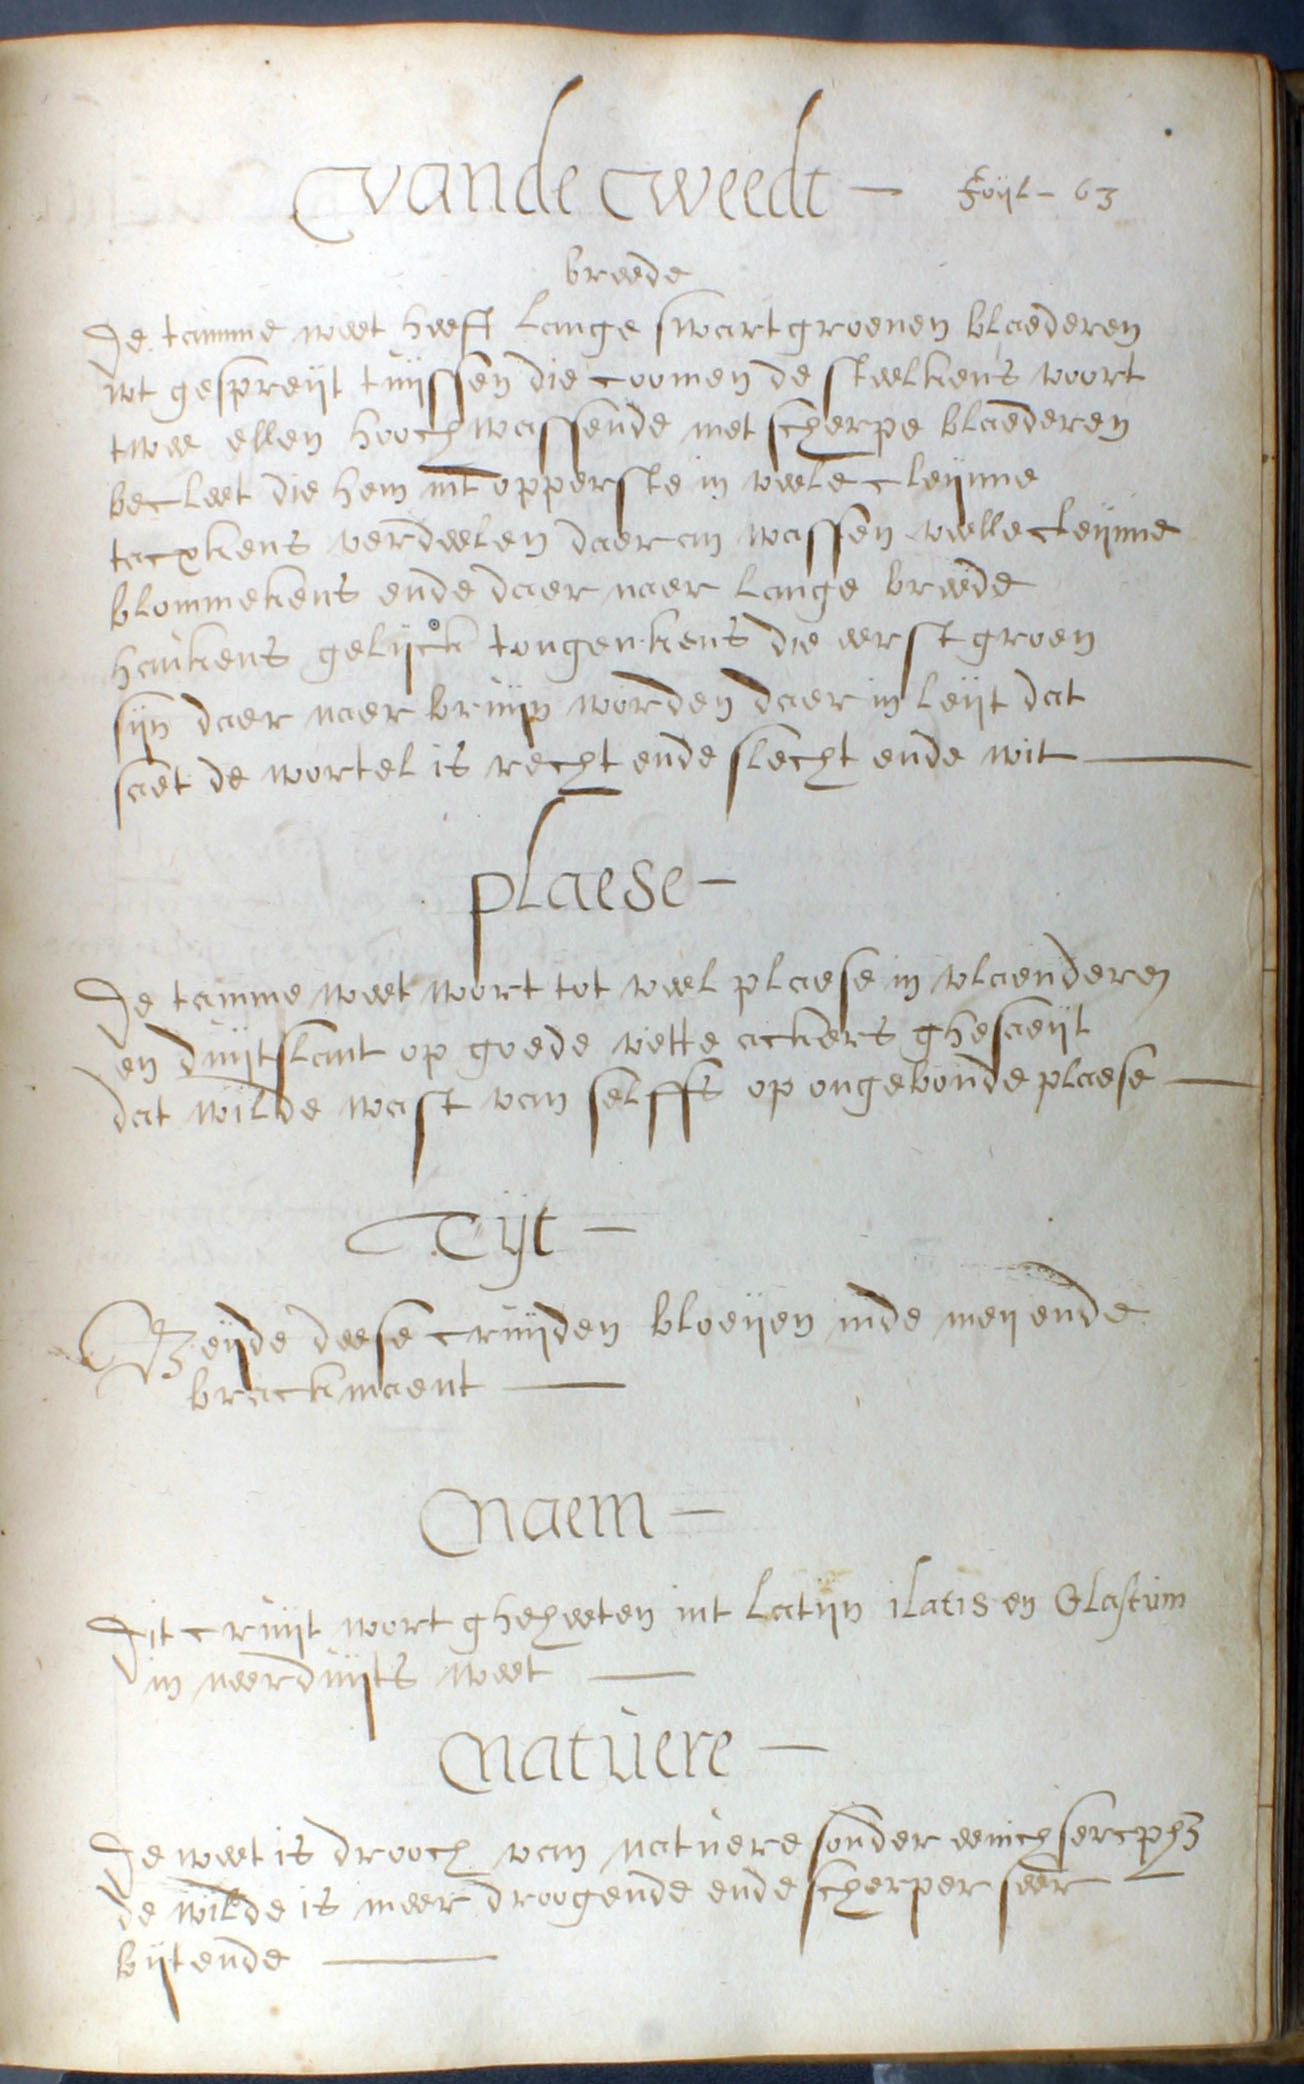 vande weedt – foijl – 63
breede
De tamme weet heeft lange swartgroenen blaederen
wt gespreijt tuijssen die coomen de steelkens voort
twee ellen hooch wassende met scherpe blaederen
becleet die hem int opperste in veele cleijnne
tacxkens verdeelen daer an wassen veelle cleijnne
blommekens ende daer naer lange breede
haukens gelijck tongenkens die eerst groen
sijn daer naer bruijn worden daer in leijt dat
saet de wortel is recht ende slecht ende wit
plaese –
De tamme weet wort tot veel plaese in vlaenderen
en duijtslant op goede vette ackers ghesaeijt
dat wilde wast van selffs op ongebonde plaese
Tijt –
Beijde deese cruijden bloeijen inde meij ende
brackmaent
naem –
Dit cruijt wort gheheeten int latijn ilatis en Glastum
in neerduijts weet
natuere –
De weet is drooch van natuere sonder eenich
de wilde is meer droogende ende scherper seer
bijtende